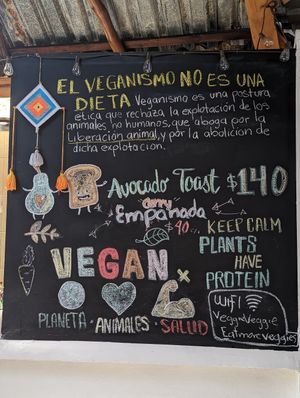 EL VEGANISMO NO ES UNA
DIETA Veganismo es una postura
etica que rechaza la explotación de los
animales no humanos, que aboga por la
Liberación animal, y por la abolición de
dicha explotación.
Avocado Toast $140
Empanada
$40
KEEP CALM
PLANTS
HAVE
PROTEIN
VEGAN
PLANETA · ANIMALES · SALUD
Wifi
VeggieVeggie
Eatmoreveggies